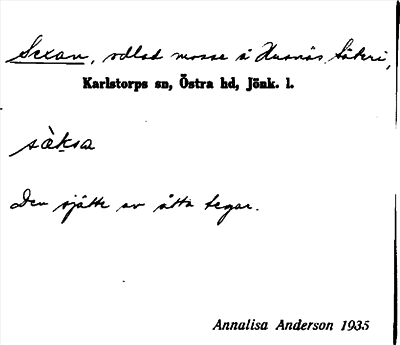 Sexan, odlad mosse å Husnäs Säteri,
Karlstorps sn, Östra hd, Jönk. l.
sàksa
Den sjätte av åtta tegar.
Annalisa Anderson 1935